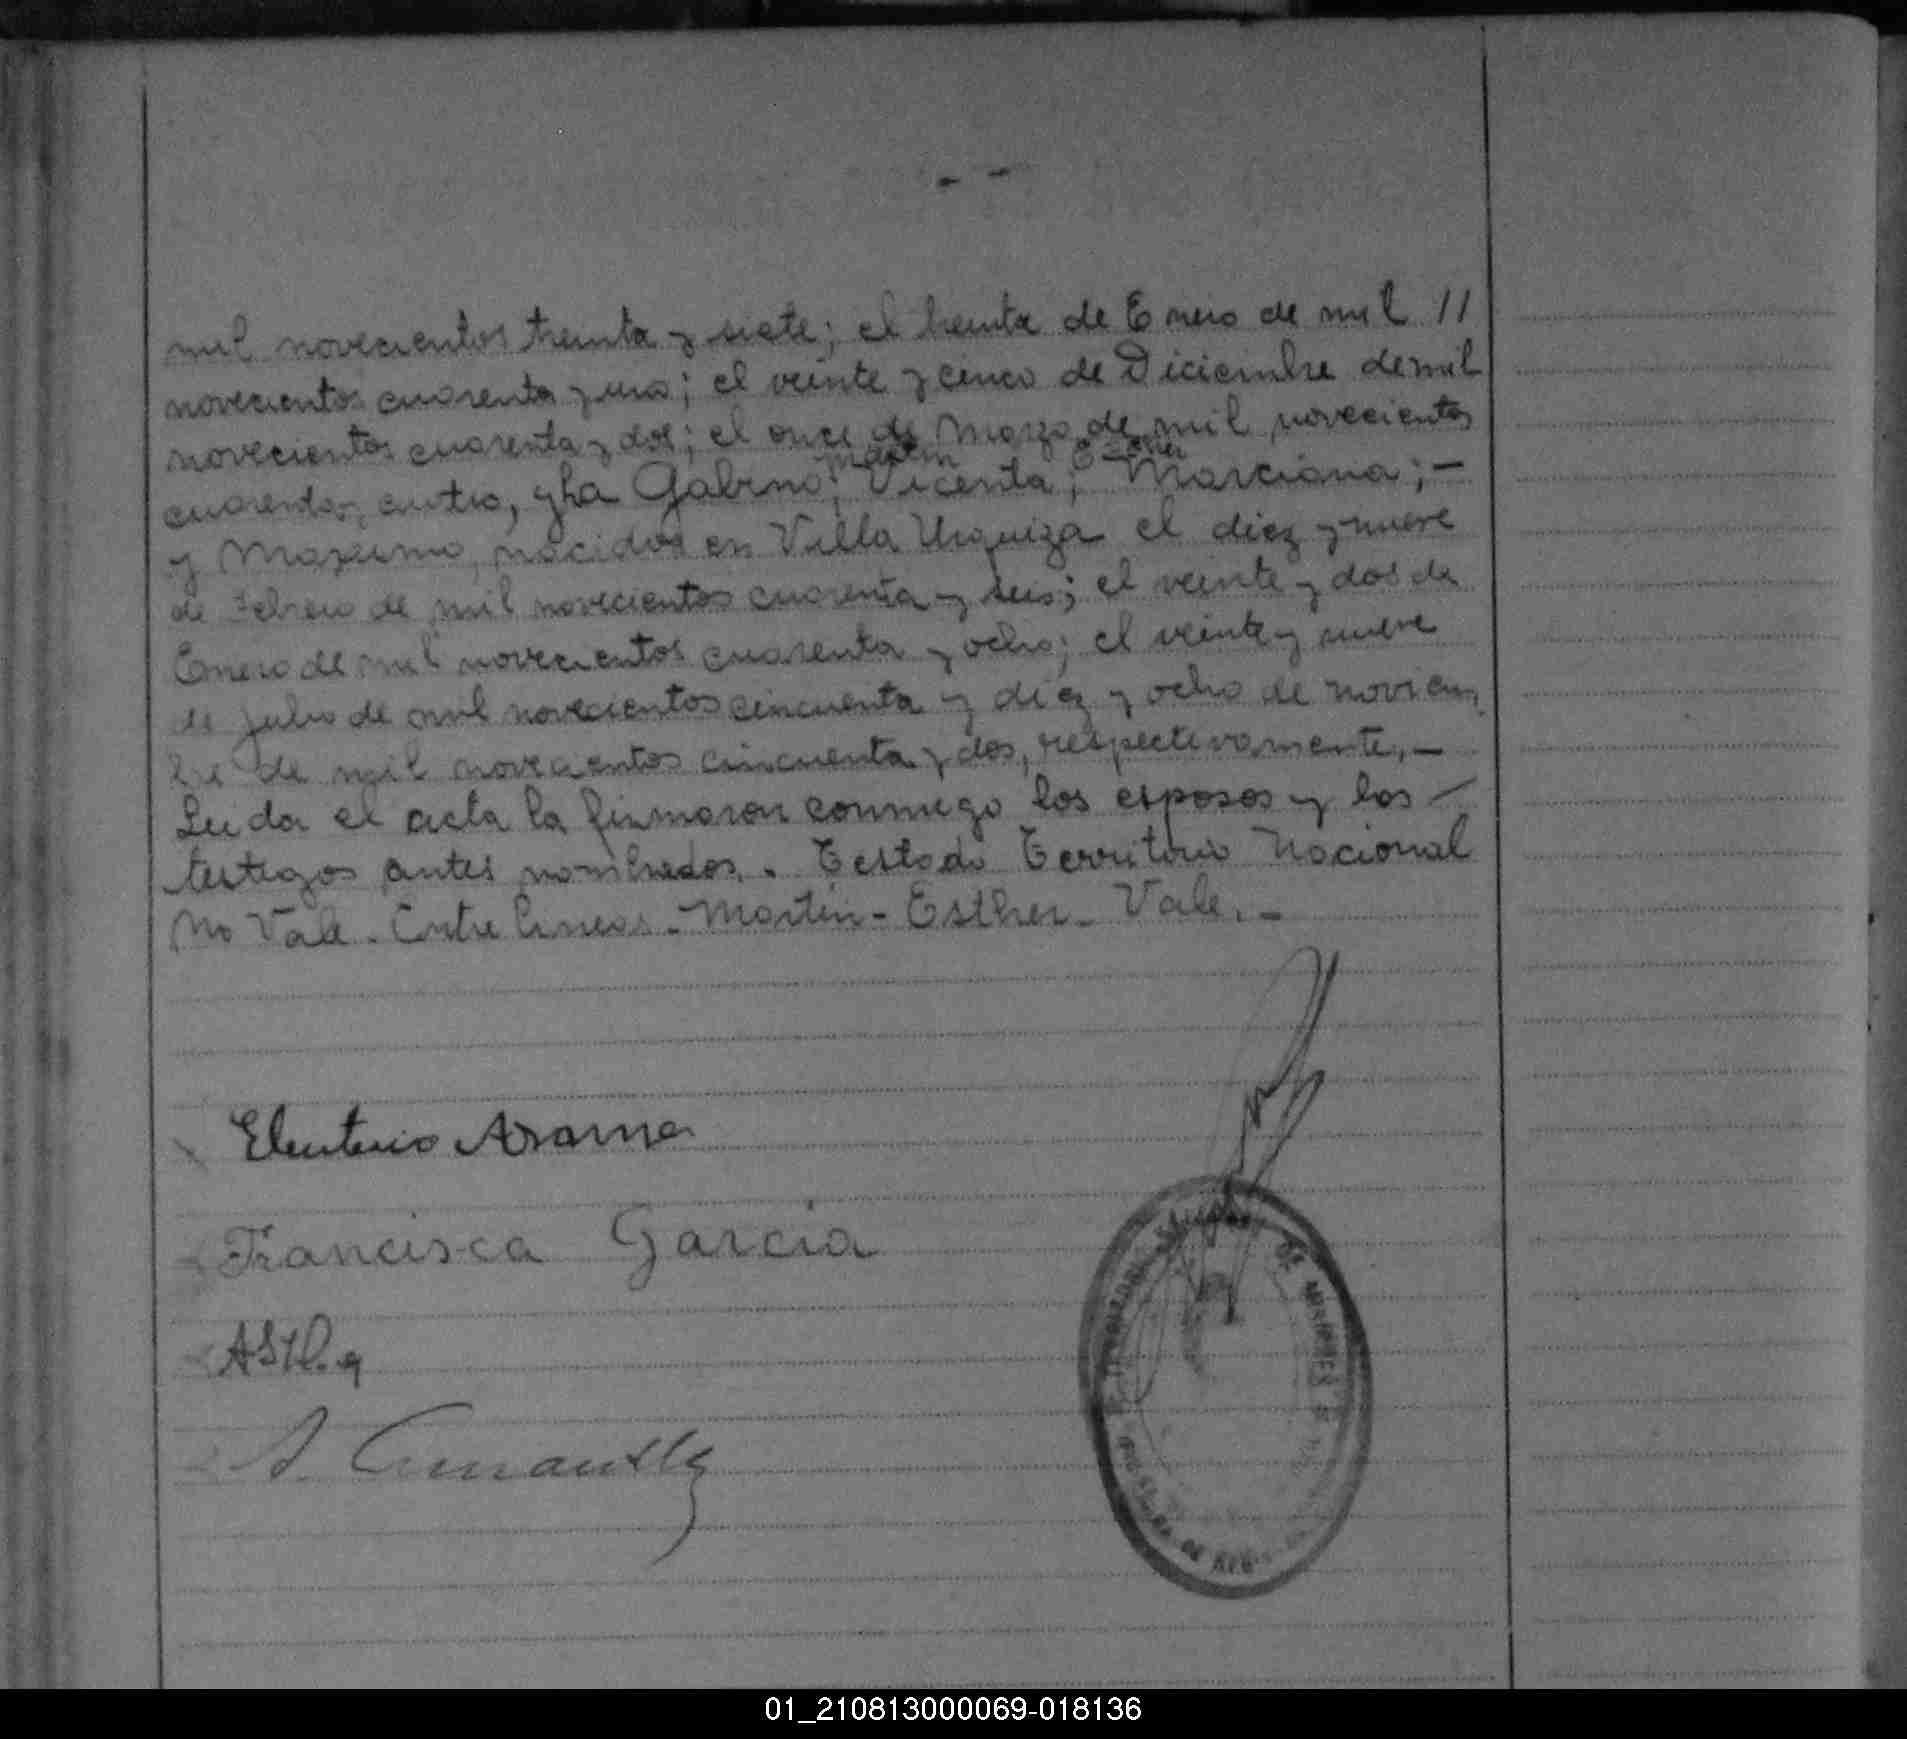 - -
mil novecientos treinta y siete; el treinta de Enero de mil //
novecientos cuarenta y uno; el veinte y cinco de Diciembre de mil
novecientos cuarenta y dos; el once de Marzo de mil novecientos
Martin Esther
cuarenta y cuatro, y ha Gabino; Vicenta; Marciana; -
y Maximo, nacidos en Villa Urquiza el diez y nueve
de Febrero de mil novecientos cuarenta y seis; el veinte y dos de
Enero de mil novecientos cuarenta y ocho; el veinte y nueve
de julio de mil novecientos cincuenta y diez y ocho de noviem
bre de mil novecientos cincuenta y dos, respectivamente. -
Leida el acta la firmaron conmigo los esposos y los -
testigos antes nombrados. - Testado Territorio Nacional
No Vale - Entre lineas - Martin - Esther - Vale. -
Eleuterio
Francisca Garcia
DE MISIONES
01_210813000069-018136